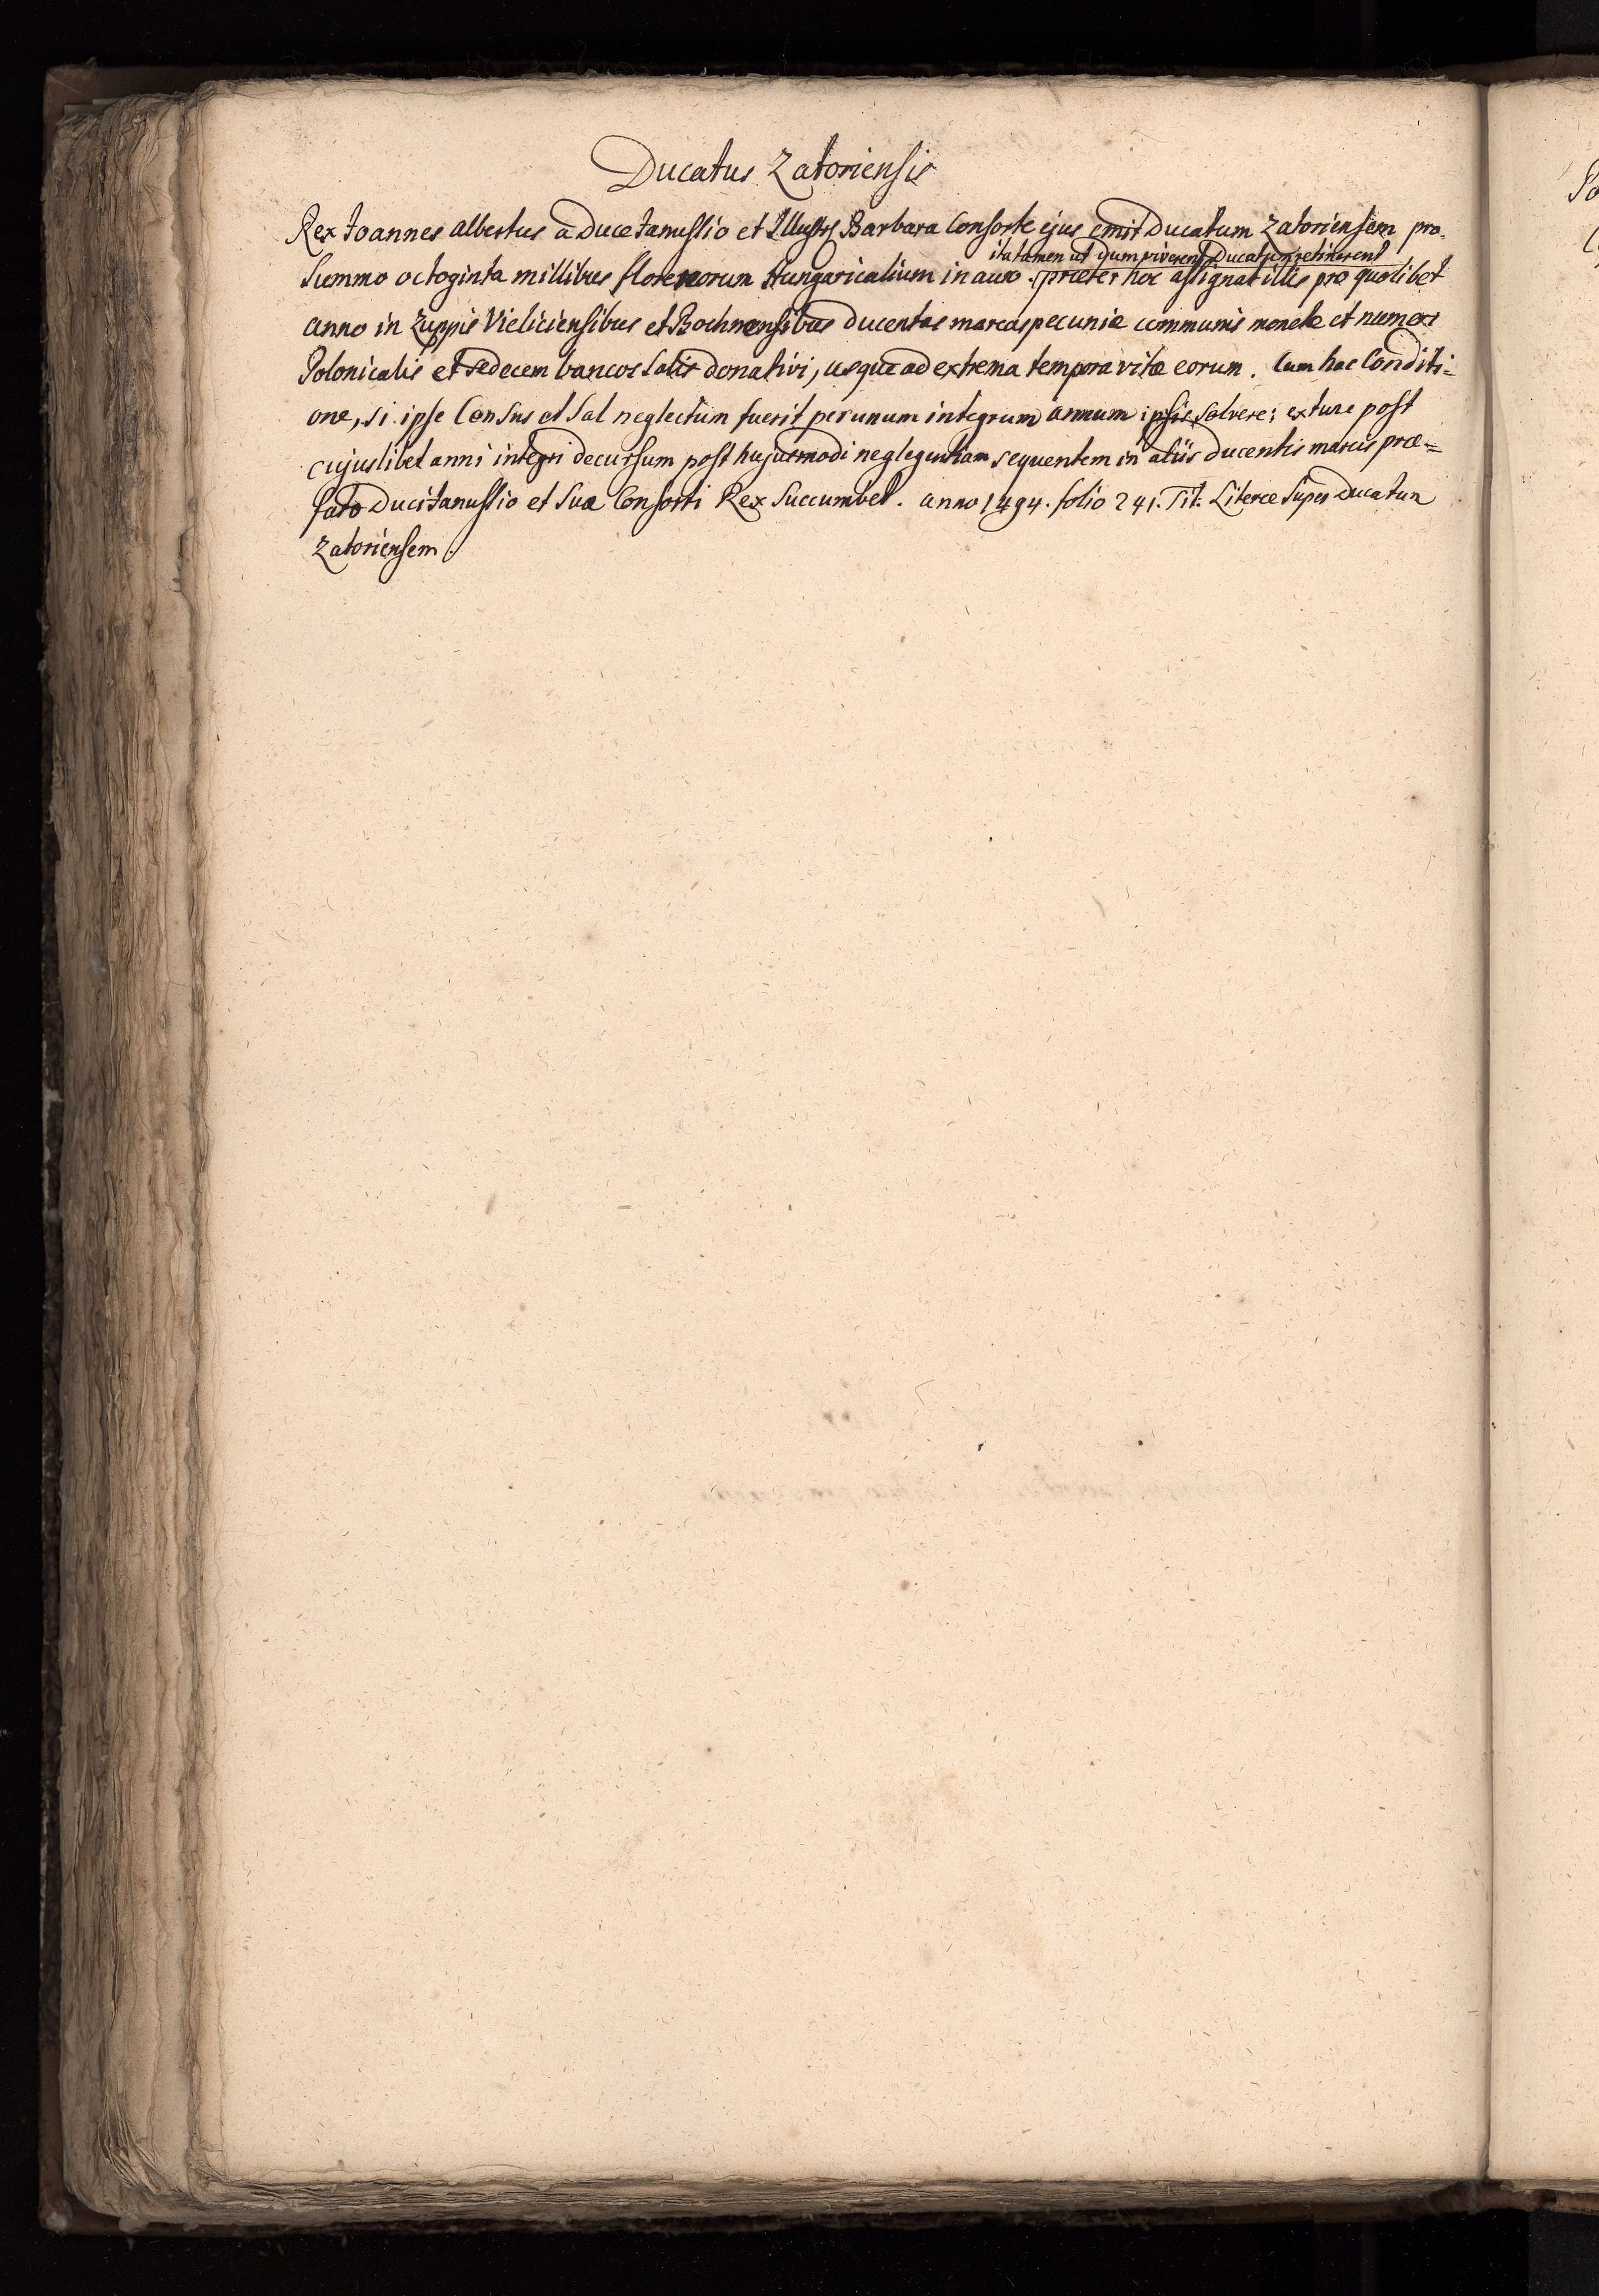 Ducatus Zatoriensis
Rex Joannes Albertus a Duce Janussio et Illustri Barbara Consorte ejus emit Ducatum Zatoriensem pro
ita tamen ut dum viverent Ducatum retinerent
Summo octoginta millibus florenorum Hungaricalium in auro. praeter hoc assignat illis pro quolibet
anno in Zuppis Vieliciensibus et Bochnensibus Ducentas marcas pecuniæ communis monetæ et numeri
Polonicalis et sedecem bancos Salis donativi, usque ad extrema tempora vitæ eorum. Cum hac Conditi=
one, si ipse Census et Sal neglectum fuerit per unum integrum annum ipsis solvere; ex tunc post
cujuslibet anni integri decursum post hujusmodi neglegentiam sequentem in aliis ducentis marcis præ=
fato Duci Janussio et Suæ Consorti Rex Succumbet. anno 1494. folio 241. Tit: Literæ Super Ducatum
Zatoriensem.